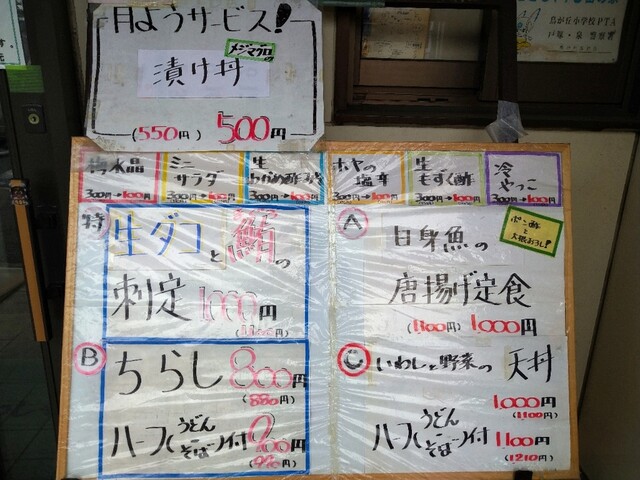 月ようサービス!
メジマグロの
漬け丼
(550円) 500円
鳥が丘小学校PTA
戸塚・泉 警察署
梅水晶
300円→100円
ミニ
サラダ
300円→100円
生
300円→100円
ホヤの
塩辛
300円→100円
生
もずく酢
300円→100円
冷
やっこ
300円→100円
特
生ダコと鮪の
刺定 1000円
(1100円)
A
白身魚の
ポン酢と
大根おろし!
唐揚げ定食
(1100円) 1,000円
B
ちらし 800円
(880円)
ハーフ(うどん
そば)付 900円
(990円)
C
いわしと野菜の 天丼
1,000円
(1,100円)
ハーフ(うどん
そば)付 1100円
(1210円)